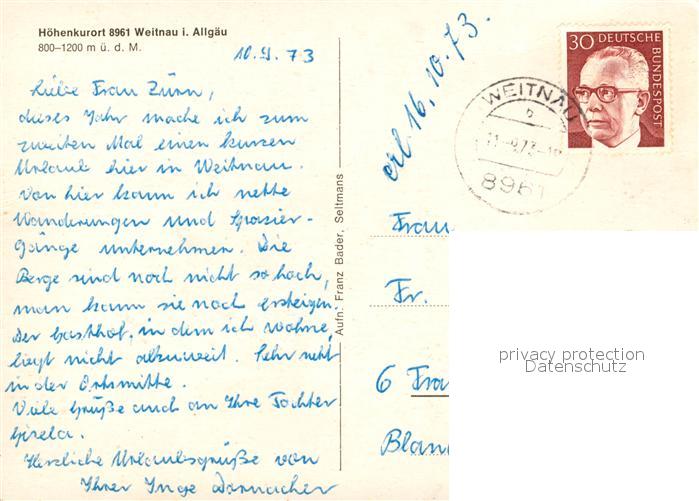 Höhenkurort 8961 Weitnau i. Allgäu
800–1200 m ü. d. M.
10.9.73
Liebe Frau Zürn,
dieses Jahr mache ich zum
zweiten Mal einen kurzen
Urlaub hier in Weitnau.
Von hier kann ich nette
Wanderungen und Spazier-
Gänge unternehmen. Die
Berge sind noch nicht so hoch,
man kann sie noch ersteigen.
Der Gasthof, in dem ich wohne,
liegt nicht allzuweit. Sehr nett
in der Ortsmitte.
Viele Grüße auch an Ihre Tochter
Gisela.
Herzliche Urlaubsgrüße von
Ihrer Inge Dornacher
Aufn. Franz Bader, Seltmans
erl. 16.10.73.
30 DEUTSCHE BUNDESPOST
WEITNAU
b
8961
Frau
Fr.
6 Fra
Blan
privacy protection
Datenschutz